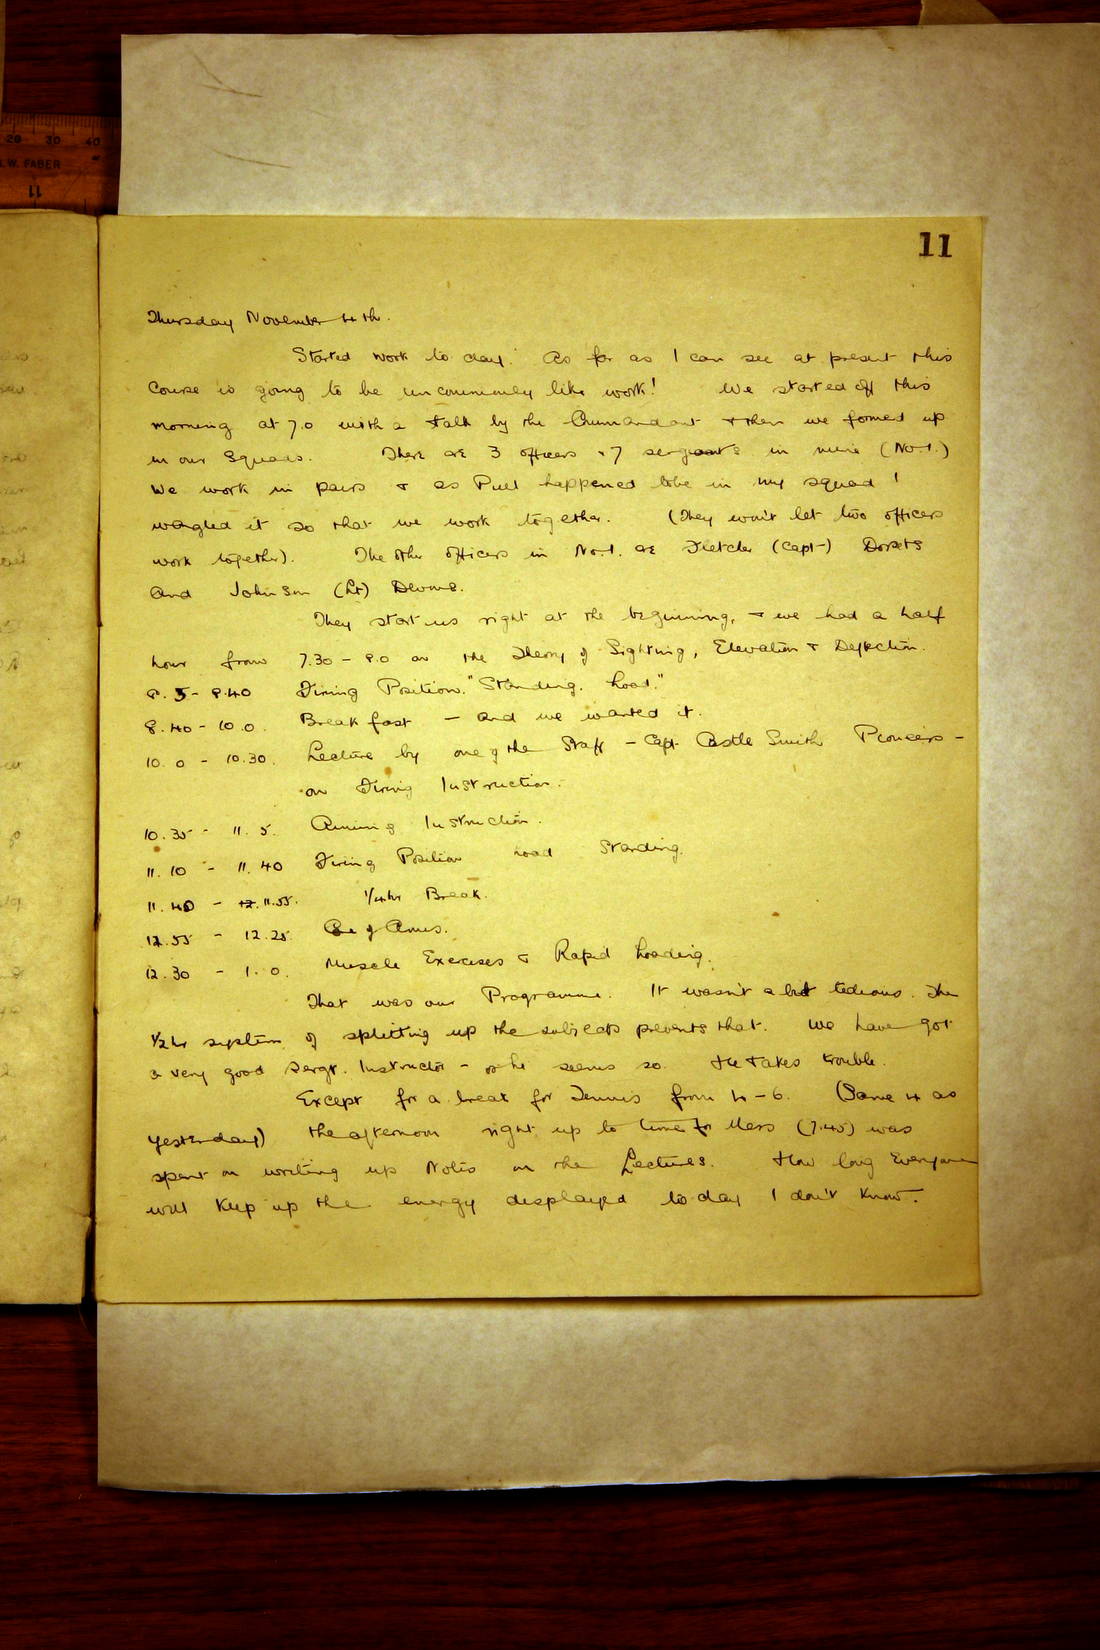 20 30 40
W. FABER
11
11
Thursday November 4th.
Started work to day. As far as I can see at present this
course is going to be uncommonly like work! We started off this
morning at 7.0 with a talk by the Commandant & then we formed up
in our Squads. There are 3 officers & 7 sergeants in mine (No.1.)
We work in pairs & as Purl happened to be in my squad I
wangled it so that we work together. (They won't let two officers
work together). The other officers in No.1. are Fletcher (Capt-) Dorsets
and Johnson (Lt) Devons.
They start us right at the beginning, & we had a half
hour from 7.30 - 8.0 on the Theory of Sighting, Elevation & Deflection.
8.5 - 8.40 Firing Position. "Standing. Load."
8.40 - 10.0. Breakfast - and we wanted it.
10.0 - 10.30. Lecture by one of the Staff - Capt. Castle Smith Pioneers -
on Firing Instruction.
10.35 - 11.5. Aiming Instruction.
11.10 - 11.40 Firing Position Load Standing.
11.40 - 12. 11.55. 1/4 hr Break.
12.55 - 12.25. Care of Arms.
12.30 - 1.0. Muscle Exercises & Rapid Loading.
That was our Programme. It wasn't a bit tedious. The
1/2 hr system of splitting up the subjects prevents that. We have got
a very good Sergt. Instructor - or he seems so. He takes trouble.
Except for a break for Tennis from 4 - 6. (Same 4 as
yesterday) the afternoon right up to time for Mess (7.45) was
spent on writing up Notes on the Lectures. How long Everyone
will keep up the energy displayed to day I don't know.